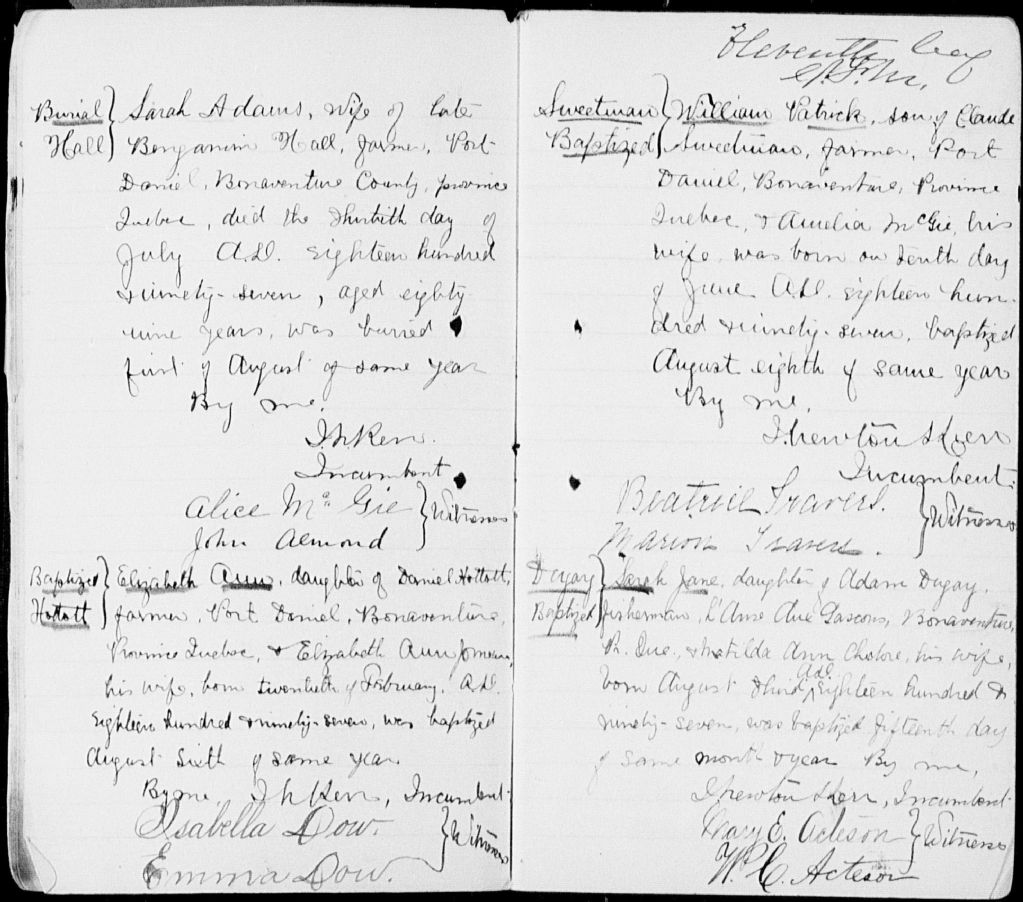 Burial Hall } Sarah Adams, wife of late
Benjamin Hall, farmer, Port
Daniel, Bonaventure County, province
Quebec, died the thirtieth day of
July A.D. eighteen hundred
& ninety-seven, aged eighty
nine years, was buried
first of August of same year
By me,
Incumbent
Alice McGie } Witnesses
John Almond
Baptized Hottott } Elizabeth Ann, daughter of Daniel Hottott,
farmer, Port Daniel, Bonaventure,
Province Quebec, & Elizabeth Ann
his wife, born twentieth of February, A.D.
eighteen hundred & ninety-seven, was baptized
August sixth of same year
By me, Incumbent
Isabella Dow. } Witnesses
Emma Dow.
Eleventh
Sweetman Baptized } William Patrick, son of Claude
Sweetman, farmer, Port
Daniel, Bonaventure, Province
Quebec, & Amelia McGie, his
wife, was born on tenth day
of June A.D. eighteen hun-
dred & ninety-seven, baptized
August eighth of same year
By me,
Incumbent.
Beatrice Travers. } Witnesses
Marion Travers.
Dugay Baptized } Sarah Jane, daughter of Adam Dugay,
fisherman, L'Anse Aux Gascons, Bonaventure,
P. Que., & Matilda Ann his wife,
born August third, A.D. Eighteen hundred &
ninety-seven, was baptized fifteenth day
of same month & year By me,
Incumbent
Mary E. Acteson } Witness
W. C. Acteson